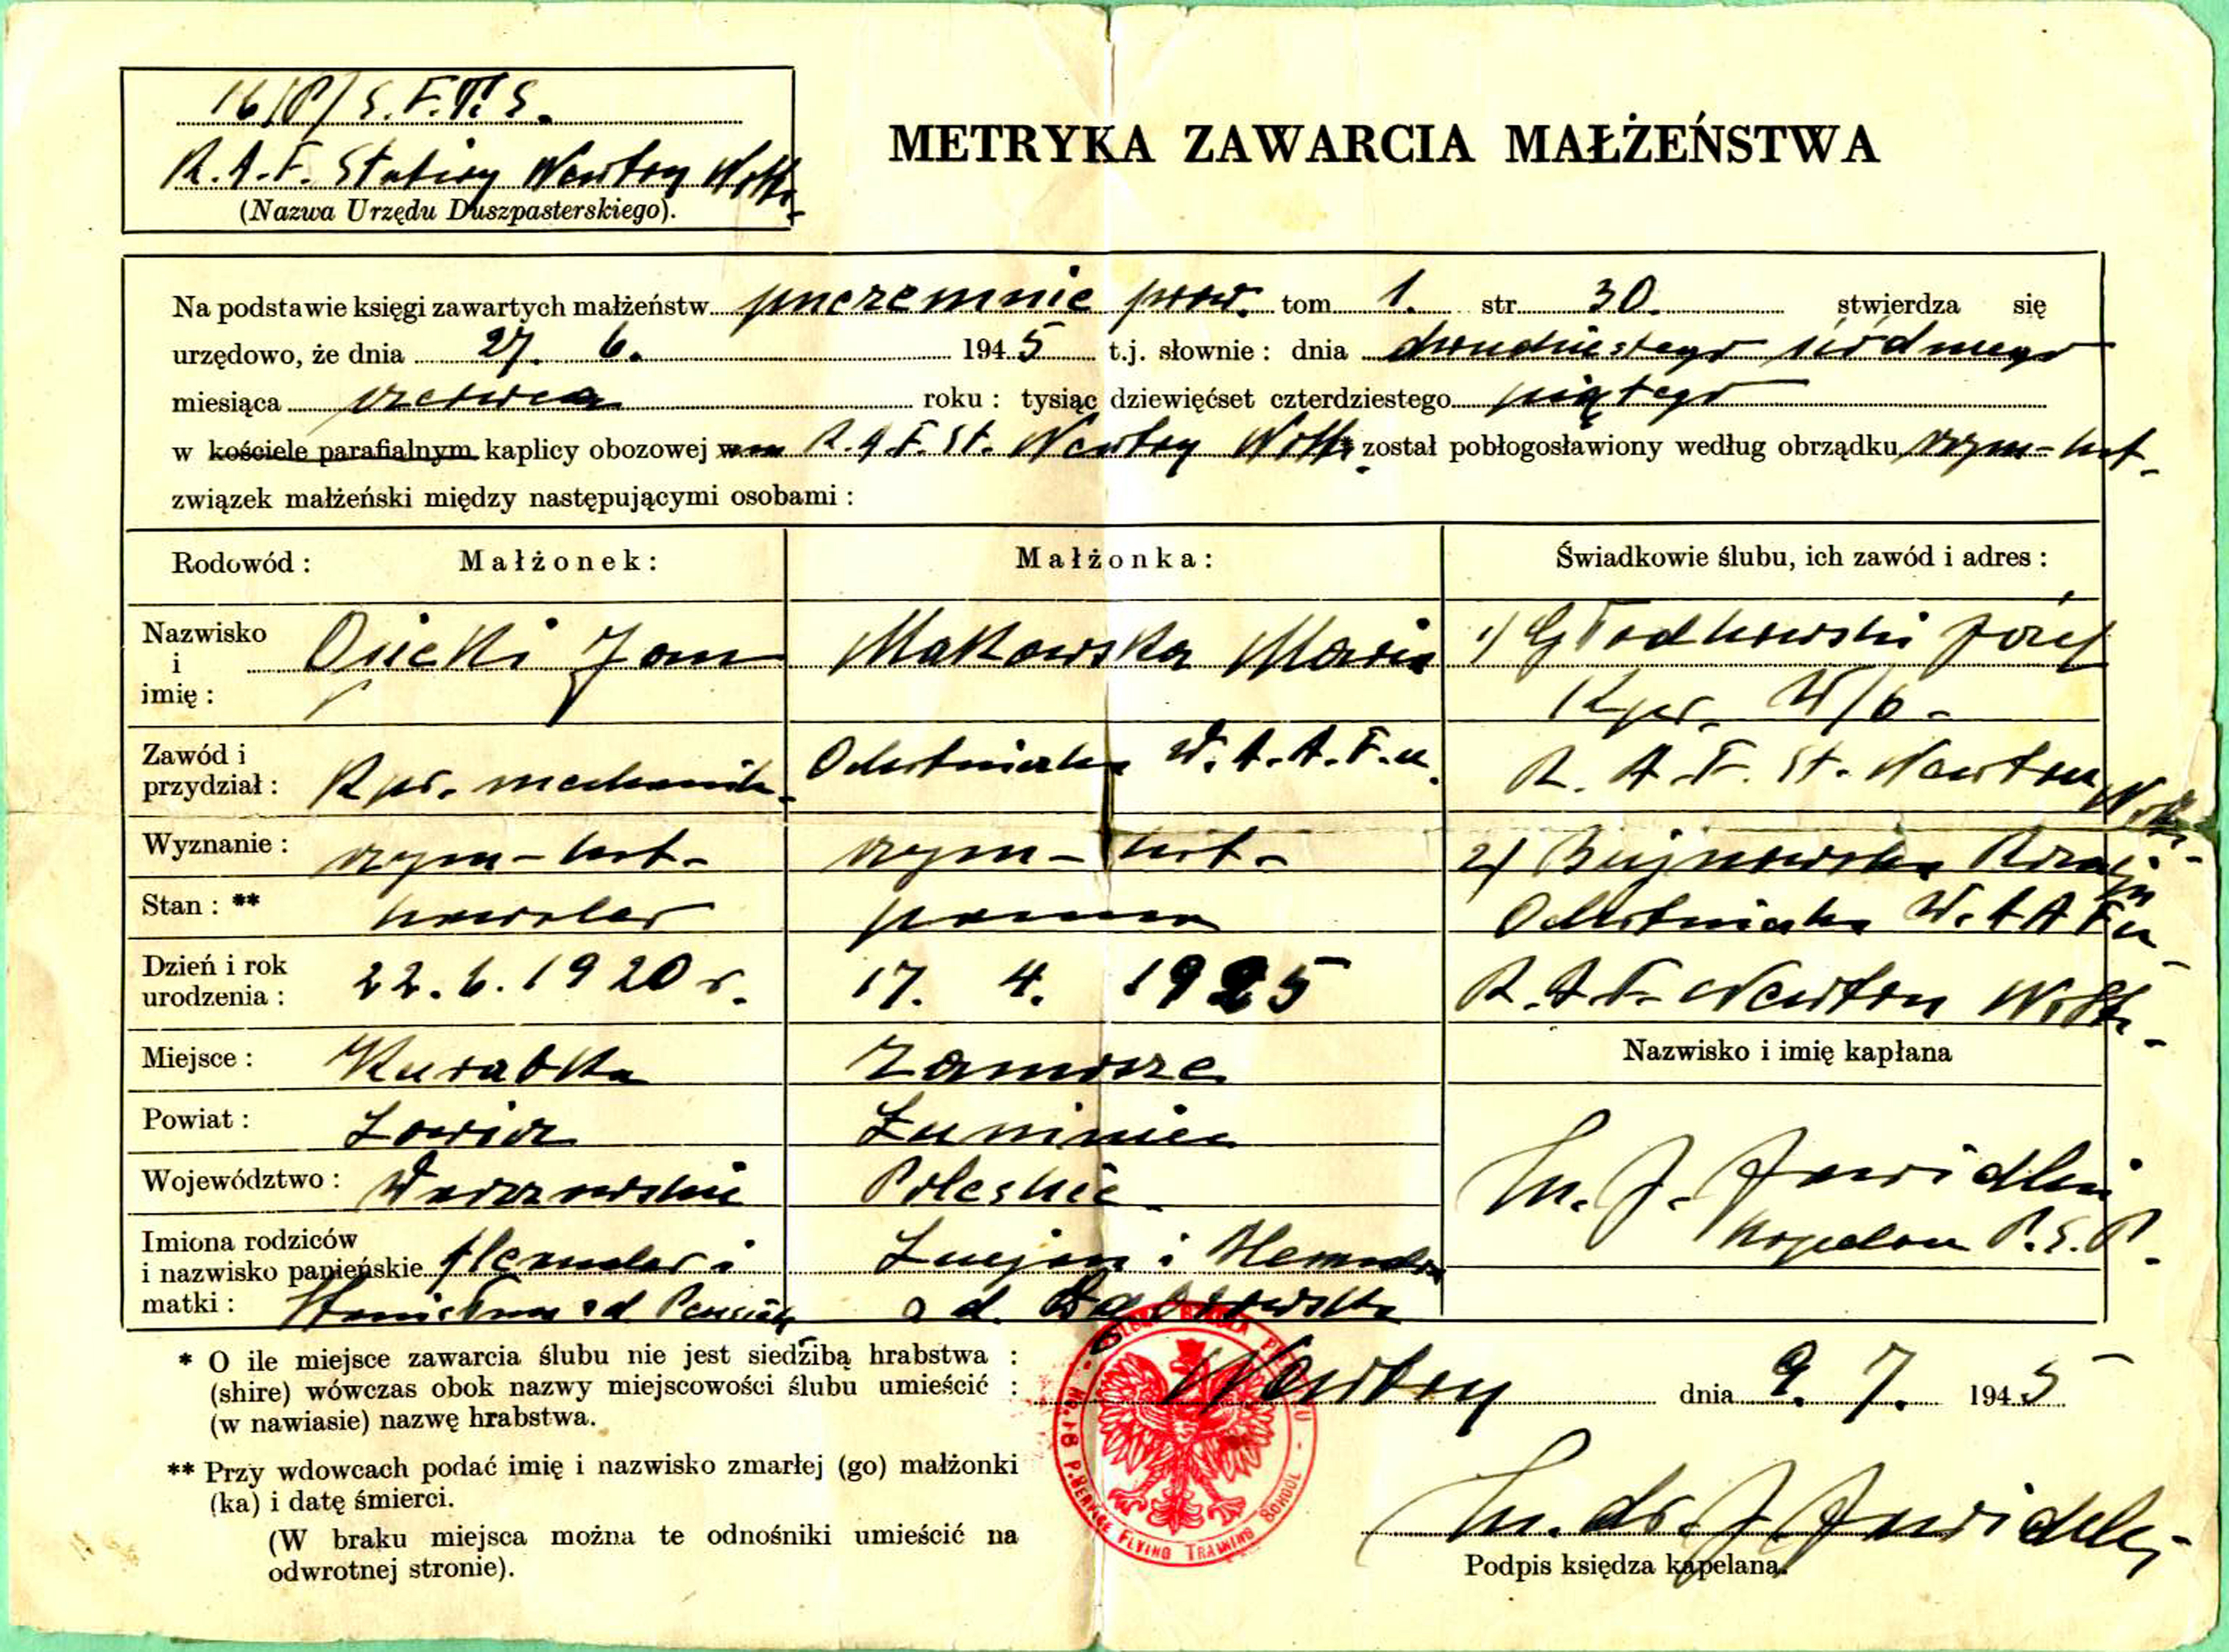 16/P/S.F.T.S.
R.A.F. Station Newton Notts.
(Nazwa Urzędu Duszpasterskiego).
METRYKA ZAWARCIA MAŁŻEŃSTWA
Na podstawie księgi zawartych małżeństw przezemnie prow. tom 1. str. 30. stwierdza się
urzędowo, że dnia 27. 6. 1945 t.j. słownie : dnia dwudziestego siódmego
miesiąca czerwca roku : tysiąc dziewięćset czterdziestego piątego
w kościele parafialnym kaplicy obozowej R.A.F. St. Newton Notts.* został pobłogosławiony według obrządku rzym-kat.
związek małżeński między następującymi osobami :
Rodowód : Małżonek : Małżonka : Świadkowie ślubu, ich zawód i adres :
Nazwisko i imię : Jan Makowska Maria 1) Głodkowski Józef
Kpr. W/O -
Zawód i przydział : Kpr. mechanik. Ochotniczka W.A.A.F.u. R.A.F. St. Newton Notts.
Wyznanie : rzym-kat. rzym-kat. 2) Bujnowska
Stan : ** kawaler panna Ochotniczka W.A.A.F.u
Dzień i rok urodzenia : 22.6.1920 r. 17. 4. 1925 R.A.F. Newton Notts.
Miejsce : Kurabka Zamosze Nazwisko i imię kapłana
Powiat : Łowicz Łuniniec
Województwo : Warszawskie Poleskie Ks. J.
kapelan P.S.P.
Imiona rodziców
i nazwisko panieńskie Aleksander i Lucjan i
matki : Stanisława od od.
* O ile miejsce zawarcia ślubu nie jest siedzibą hrabstwa :
(shire) wówczas obok nazwy miejscowości ślubu umieścić :
(w nawiasie) nazwę hrabstwa.
Newton dnia 9. 7. 1945
** Przy wdowcach podać imię i nazwisko zmarłej (go) małżonki
(ka) i datę śmierci.
(W braku miejsca można te odnośniki umieścić na
odwrotnej stronie).
No. 16 P. SERVICE FLYING TRAINING SCHOOL
Ks. dr. J.
Podpis księdza kapelana.